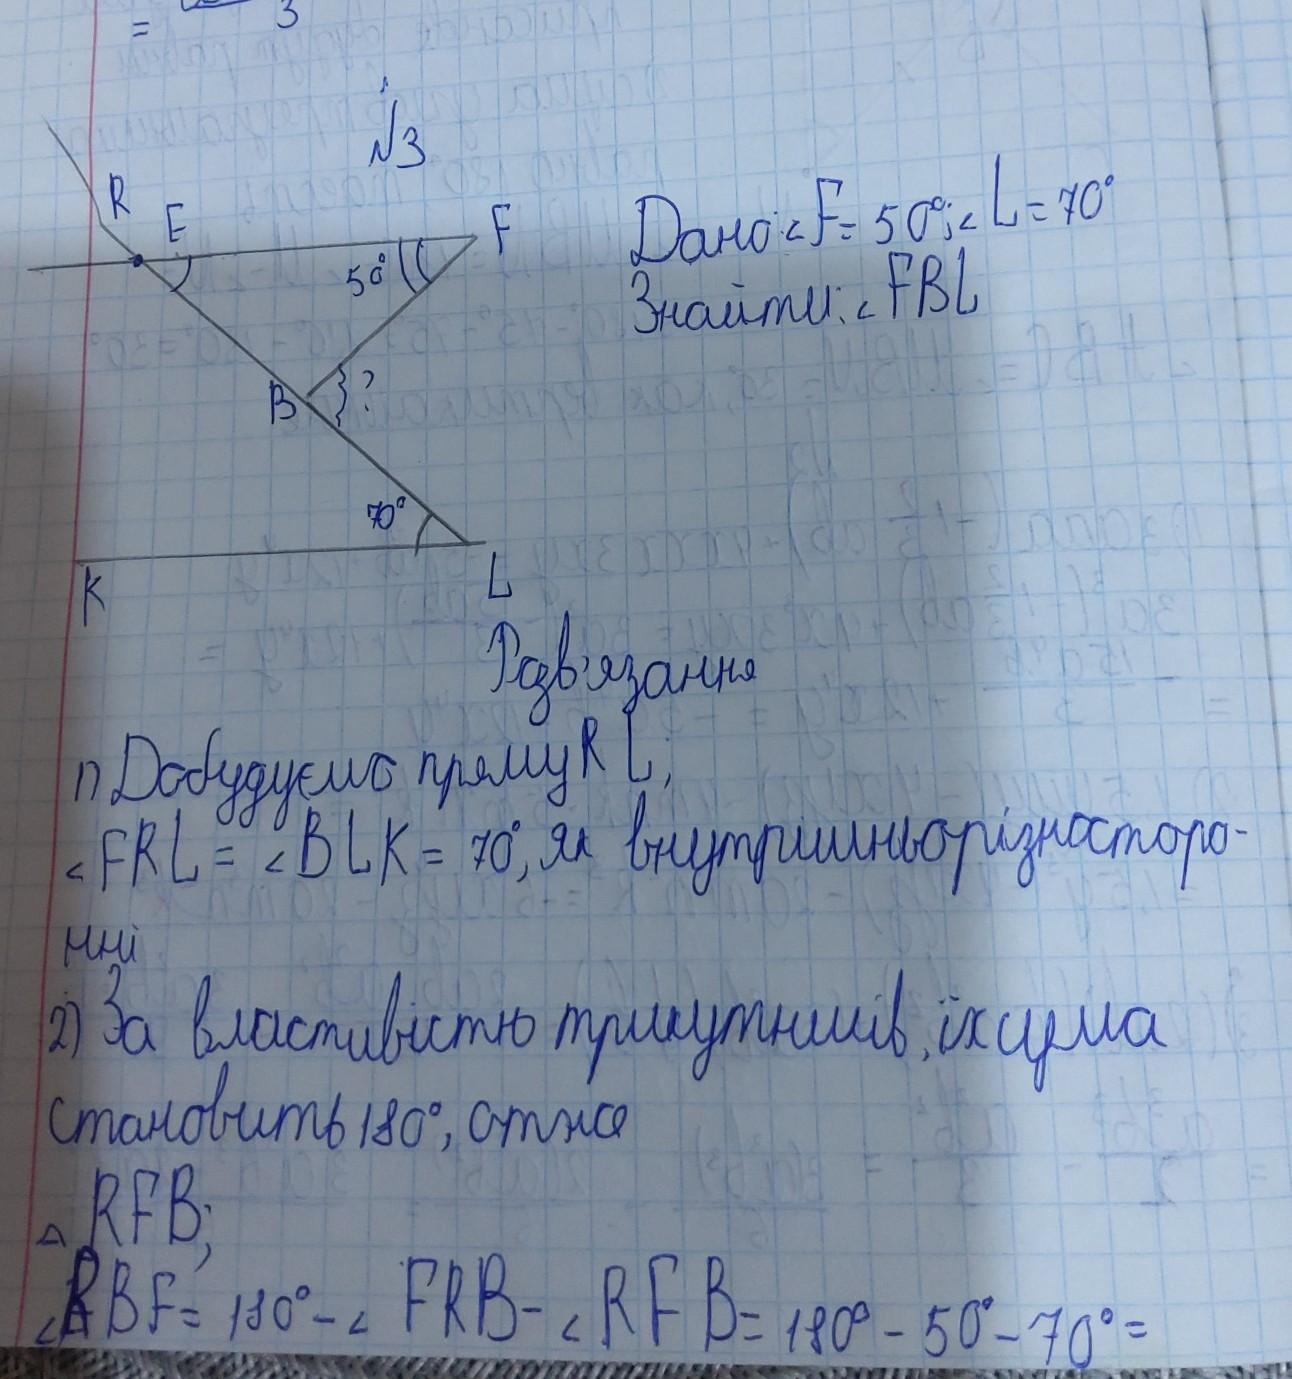 = 3
№3
R
E
F
50°
B
?
70°
K
L
Дано: ∠F = 50°; ∠L = 70°
Знайти: ∠FBL
Розв'язання
1) Добудуємо пряму RL;
∠FRL = ∠BLK = 70°, як внутрішньорізносторо-
нні
2) За властивістю трикутників, їх сума
становить 180°, отже
△RFB;
∠RBF = 180° - ∠FRB - ∠RFB = 180° - 50° - 70° =